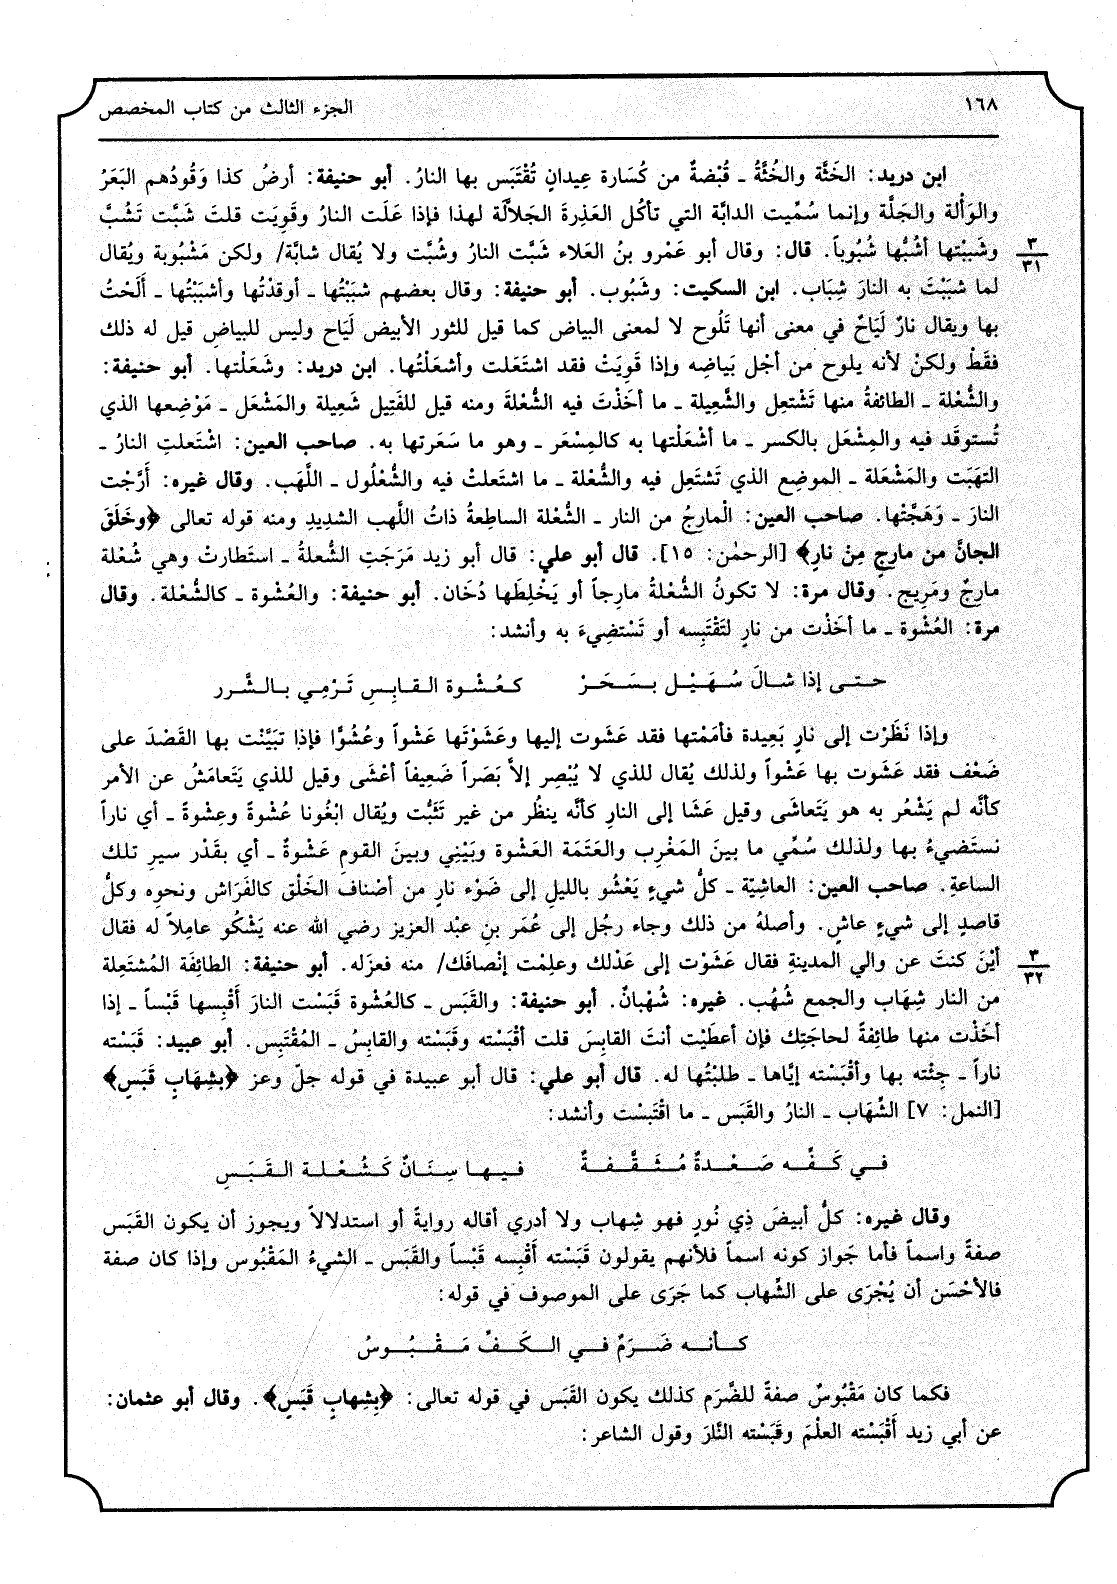 ١٦٨
الجزء الثالث من كتاب المخصص
ابن دريد: الخَثَّة والخُثَّةُ ـ قُبْضةٌ من كُسَارة عِيدانٍ تُقْتَبَس بها النارُ. أبو حنيفة: أرضُ كذا وَقُودُهم البَعَرُ
والوَأْلة والجَلَّة وإنما سُمِّيت الدابَّة التي تأكُل العَذِرةَ الجَلاَّلَة لهذا فإذا عَلَت النارُ وقَوِيَت قلتَ شَبَّت تَشُبَّ
وشَبَبْتها أشُبُّها شُبُوباً. قال: وقال أبو عَمْرو بنُ العَلاء شَبَّت النارُ وشُبَّت ولا يُقال شابَّة/ ولكن مَشْبُوبة ويُقال
٣
٣١
لما شبَبْتَ به النارَ شِبَاب. ابن السكيت: وشَبُوب. أبو حنيفة: وقال بعضهم شبَبْتُها ـ أوقدْتُها وأشبَبْتُها ـ أَلَحْتُ
بها ويقال نارٌ لَيَاحٌ في معنى أنها تَلُوح لا لمعنى البياض كما قيل للثور الأبيض لَيَاح وليس للبياضِ قيل له ذلك
فقَطْ ولكنْ لأنه يلوح من أجْل بَياضِه وإذا قَوِيَتْ فقد اشتَعَلت وأشعَلْتُها. ابن دريد: وشَعَلْتها. أبو حنيفة:
والشُّعْلة ـ الطائفةُ منها تَشْتعِل والشَّعِيلة ـ ما أخَذْتَ فيه الشُّعْلةَ ومنه قيل للفَتِيل شَعِيلة والمَشْعَل ـ مَوْضِعها الذي
تُستوقَد فيه والمِشْعَل بالكسر ـ ما أشْعَلْتها به كالمِسْعَر ـ وهو ما سَعَرتها به. صاحب العين: اشْتَعلتِ النارُ ـ
التهَبَت والمَشْعَلة ـ الموضِع الذي تَشتَعِل فيه والشُّعْلة ـ ما اشتَعلتْ فيه والشُّعْلُول ـ اللَّهَب. وقال غيره: أَرَّجْت
النارَ ـ وَهَجَّتْها. صاحب العين: الْمارِجُ من النار ـ الشُّعْلة الساطِعةُ ذاتُ اللَّهب الشديدِ ومنه قوله تعالى ﴿وخَلَقَ
الجانَّ من مارِجٍ مِنْ نارٍ﴾ [الرحمٰن: ١٥]. قال أبو علي: قال أبو زيد مَرَجَتِ الشُّعلةُ ـ استَطارتْ وهي شُعْلة
مارِجٌ ومَرِيج. وقال مرة: لا تكونُ الشُّعْلةُ مارِجاً أو يَخْلِطَها دُخَان. أبو حنيفة: والعُشْوة ـ كالشُّعْلة. وقال
مرة: العُشْوة ـ ما أخَذْت من نارٍ لتَقْتَبِسه أو تَسْتضِيءَ به وأنشد:
حتى إذا شالَ سُهَيْل بسَحَرْ كعُشْوة القابِسِ تَرْمِي بالشَّرر
وإذا نَظَرْت إلى نارٍ بَعِيدة فأمَمْتها فقد عَشَوت إليها وعَشَوْتَها عَشْواً وعُشُوًّا فإذا تبَيَّنْت بها القَصْدَ على
ضَعْف فقد عَشَوت بها عَشْواً ولذلك يُقال للذي لا يُبْصِر إلاَّ بَصَراً ضَعِيفاً أعْشَى وقيل للذي يَتَعامَشُ عن الأمر
كأنَّه لم يَشْعُر به هو يَتَعاشَى وقيل عَشَا إلى النارِ كأنَّه ينظُر من غير تَثَبُّت ويُقال ابْغُونا عُشْوةً وعِشْوةً ـ أي ناراً
نستَضيءُ بها ولذلك سُمِّي ما بينَ المَغْرِب والعَتَمَة العَشْوة وبَيْنِي وبينَ القومِ عَشْوةٌ ـ أي بقَدْر سيرِ تلك
الساعةِ. صاحب العين: العاشِيَة ـ كلُّ شيءٍ يَعْشُو بالليلِ إلى ضَوْء نارٍ من أصْناف الخَلْق كالفَرَاش ونحوِه وكلُّ
قاصدٍ إلى شيءٍ عاشٍ. وأصلهُ من ذلك وجاء رجُل إلى عُمَر بنِ عبْد العزيز رضي الله عنه يَشْكُو عامِلاً له فقال
أيْنَ كنتَ عن والي المدينةِ فقال عَشَوْت إلى عَدْلك وعلِمْت إنْصافَك/ منه فعزَله. أبو حنيفة: الطائِفَة المُشتَعِلة
٣
٣٢
من النار شِهَاب والجمع شُهُب. غيره: شُهْبانٌ. أبو حنيفة: والقَبَس ـ كالعُشْوة قَبَسْت النارَ أقْبِسها قَبْساً ـ إذا
أخَذْت منها طائِفةً لحاجَتِك فإن أعطَيْت أنتَ القابِسَ قلت أقْبَسْته وقَبَسْته والقابِسُ ـ المُقْتَبِس. أبو عبيد: قَبَسْته
ناراً ـ جِئْته بها وأقْبَسْته إيَّاها ـ طلبْتُها له. قال أبو علي: قال أبو عبيدة في قوله جلّ وعز ﴿بشِهَابٍ قَبَسٍ﴾
[النمل: ٧] الشِّهَاب ـ النارُ والقَبَس ـ ما اقْتَبَسْت وأنشد:
في كَفِّه صَعْدةٌ مُثَقَّفةٌ فيها سِنَانٌ كَشُعْلة القَبَسِ
وقال غيره: كلُّ أبيضَ ذِي نُورٍ فهو شِهاب ولا أدري أقاله روايةً أو استدلالاً ويجوز أن يكون القَبَس
صفةً واسماً فأما جَواز كونه اسماً فلأنهم يقولون قَبَسْته أَقْبِسه قَبْساً والقَبَس ـ الشيءُ المَقْبُوس وإذا كان صفة
فالأحْسَن أن يُجْرَى على الشِّهاب كما جَرَى على الموصوف في قوله:
كأنه ضَرَمٌ في الكَفِّ مَقْبُوسُ
فكما كان مَقْبُوسٌ صفةً للضَّرَم كذلك يكون القَبَس في قوله تعالى: ﴿بِشِهابٍ قَبَسٍ﴾. وقال أبو عثمان:
عن أبي زيد أَقْبَسْته العلْمَ وقَبَسْته النَّارَ وقول الشاعر: